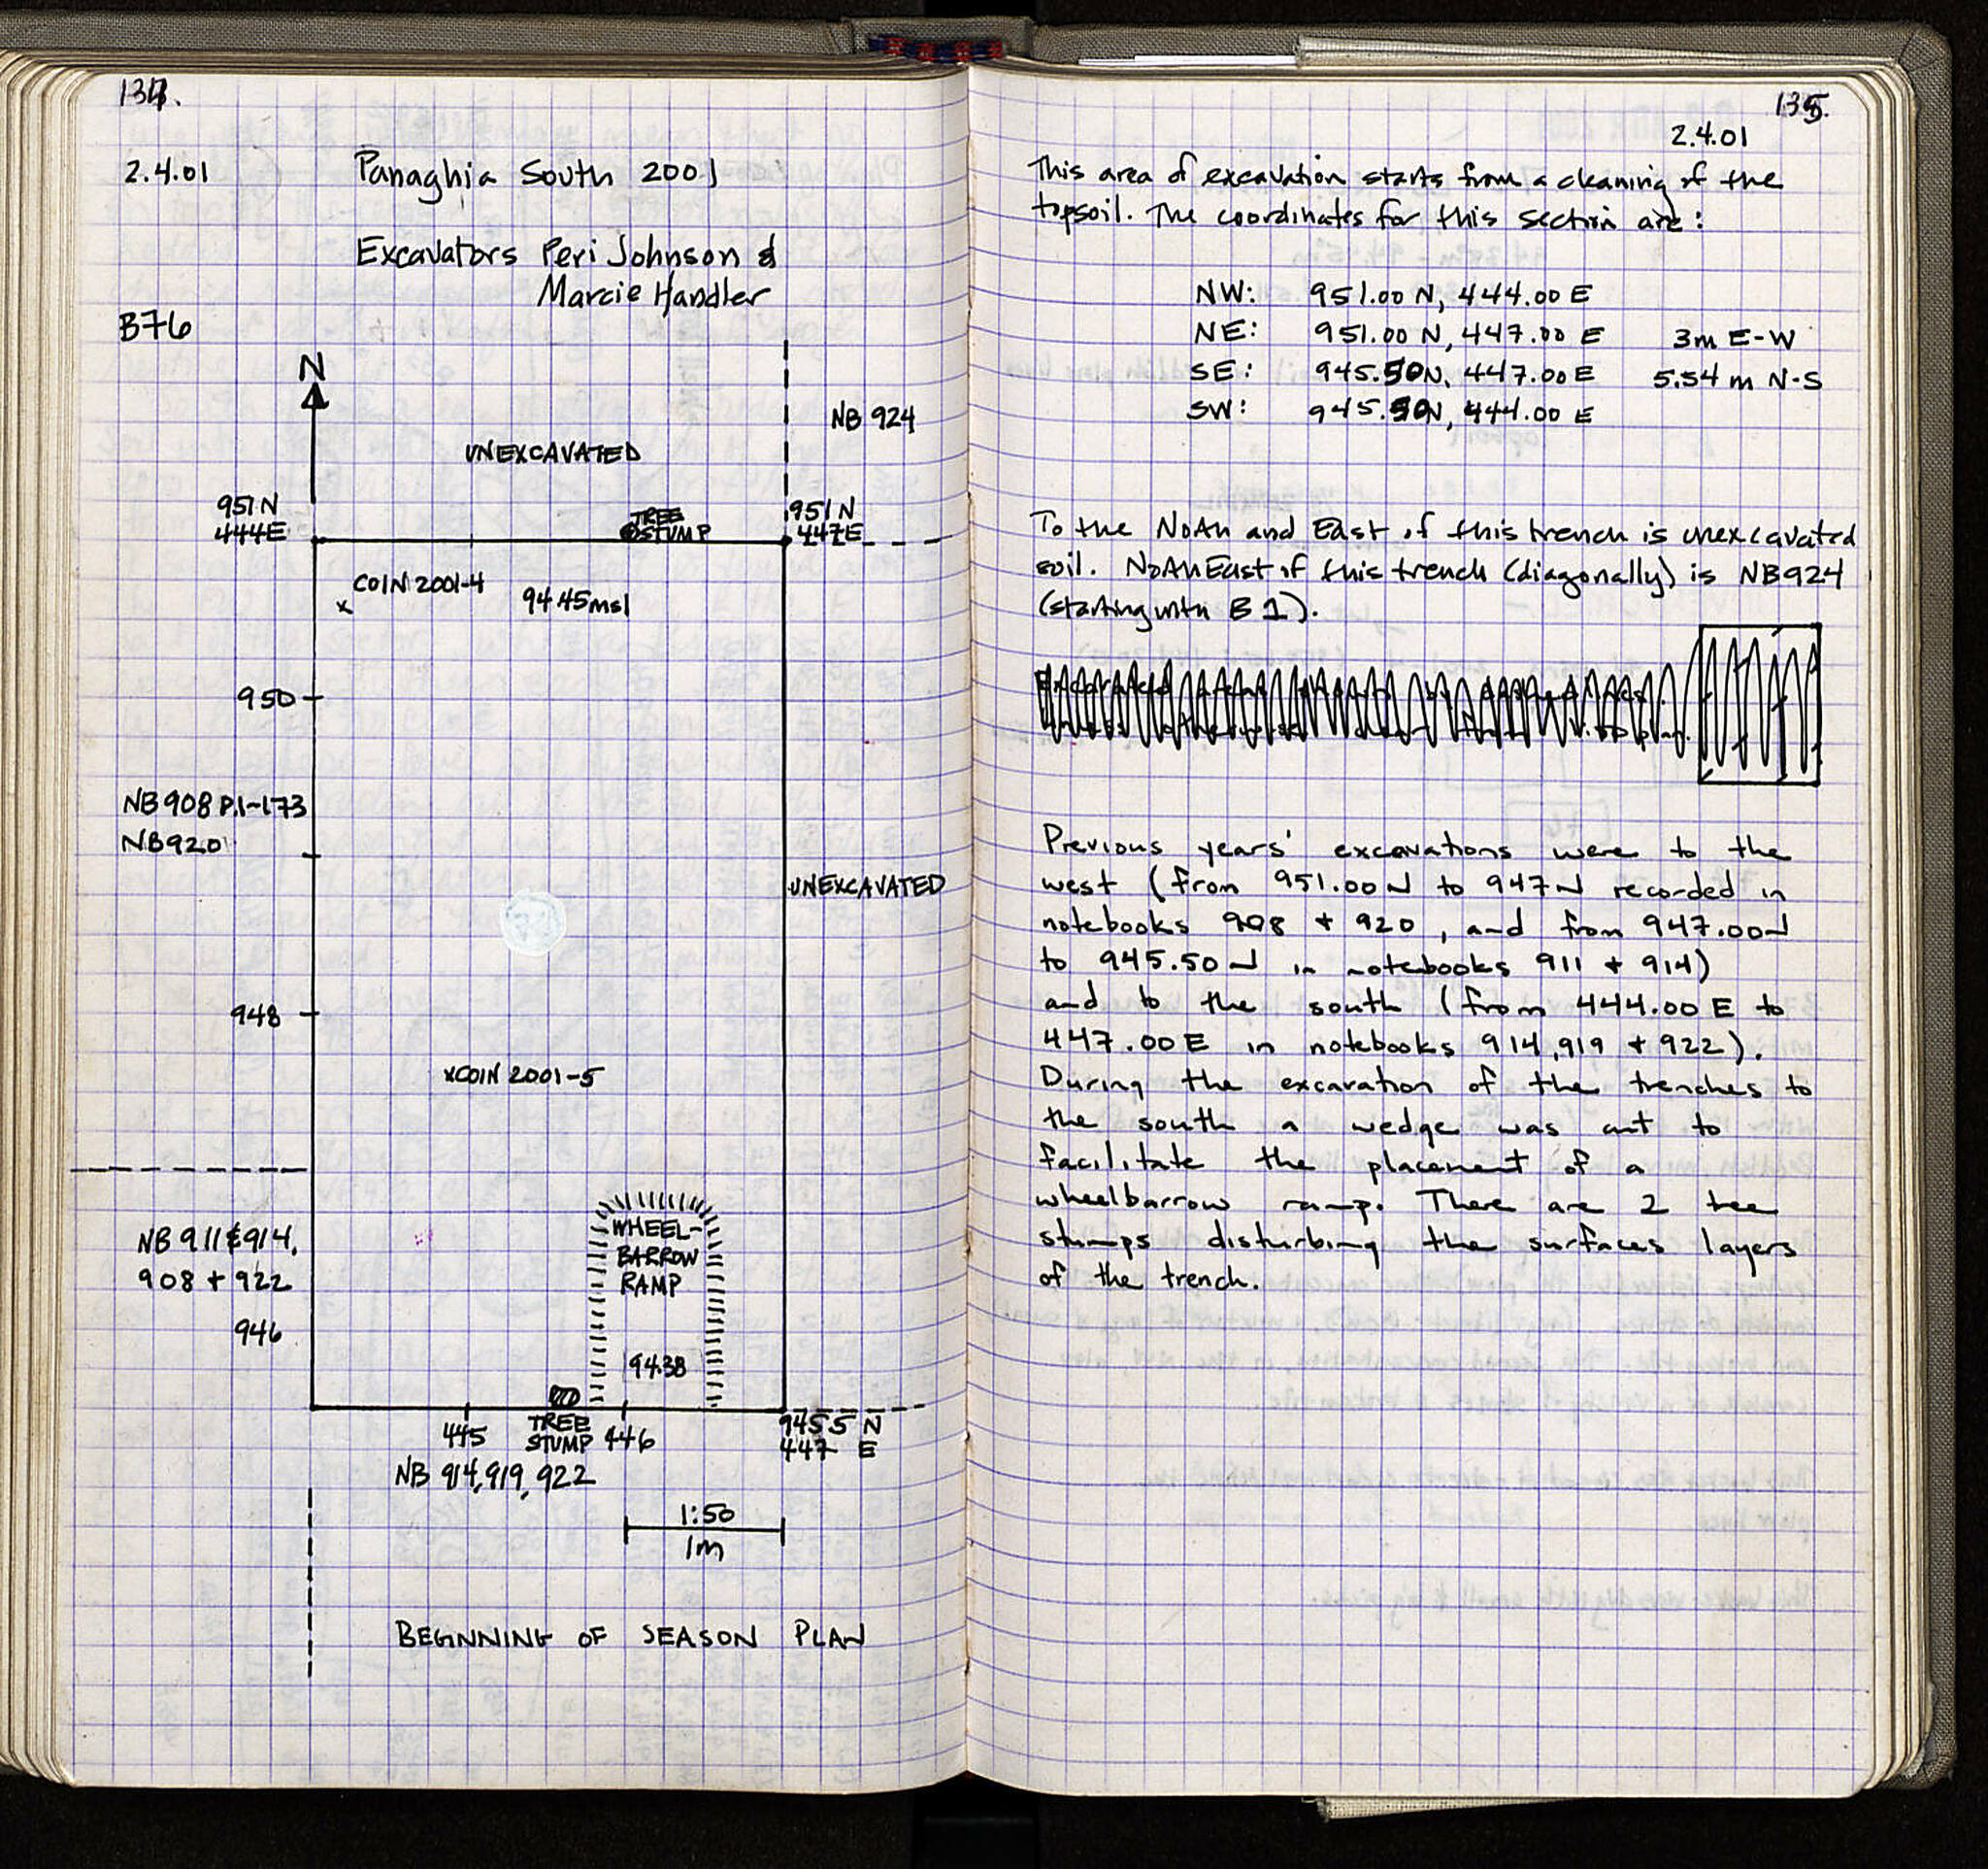 134.
2.4.01 Panaghia South 2001
Excavators Peri Johnson &
Marcie Handler
B76
N
NB 924
UNEXCAVATED
951 N
444E
TREE
STUMP
951 N
447E
COIN 2001-4
x
94.45msl
950
NB 908 P.1-173
NB920
UNEXCAVATED
948
xCOIN 2001-5
NB 911 & 914,
908 + 922
WHEEL-
BARROW
RAMP
946
94.38
445
TREE
STUMP
446
945.5 N
447 E
NB 914, 919, 922
1:50
1m
BEGINNING OF SEASON PLAN
135.
2.4.01
This area of excavation starts from a cleaning of the
topsoil. The coordinates for this section are:
NW: 951.00 N, 444.00 E
NE: 951.00 N, 447.00 E 3m E-W
SE: 945.50N, 447.00 E 5.54 m N-S
SW: 945.50N, 444.00 E
To the North and East of this trench is unexcavated
soil. NorthEast of this trench (diagonally) is NB924
(starting with B 1).
Previous years' excavations were to the
west (from 951.00N to 947N recorded in
notebooks 908 + 920, and from 947.00N
to 945.50N in notebooks 911 + 914)
and to the south (from 444.00 E to
447.00E in notebooks 914,919 + 922).
During the excavation of the trenches to
the south a wedge was cut to
facilitate the placement of a
wheelbarrow ramp. There are 2 tee
stumps disturbing the surfaces layers
of the trench.